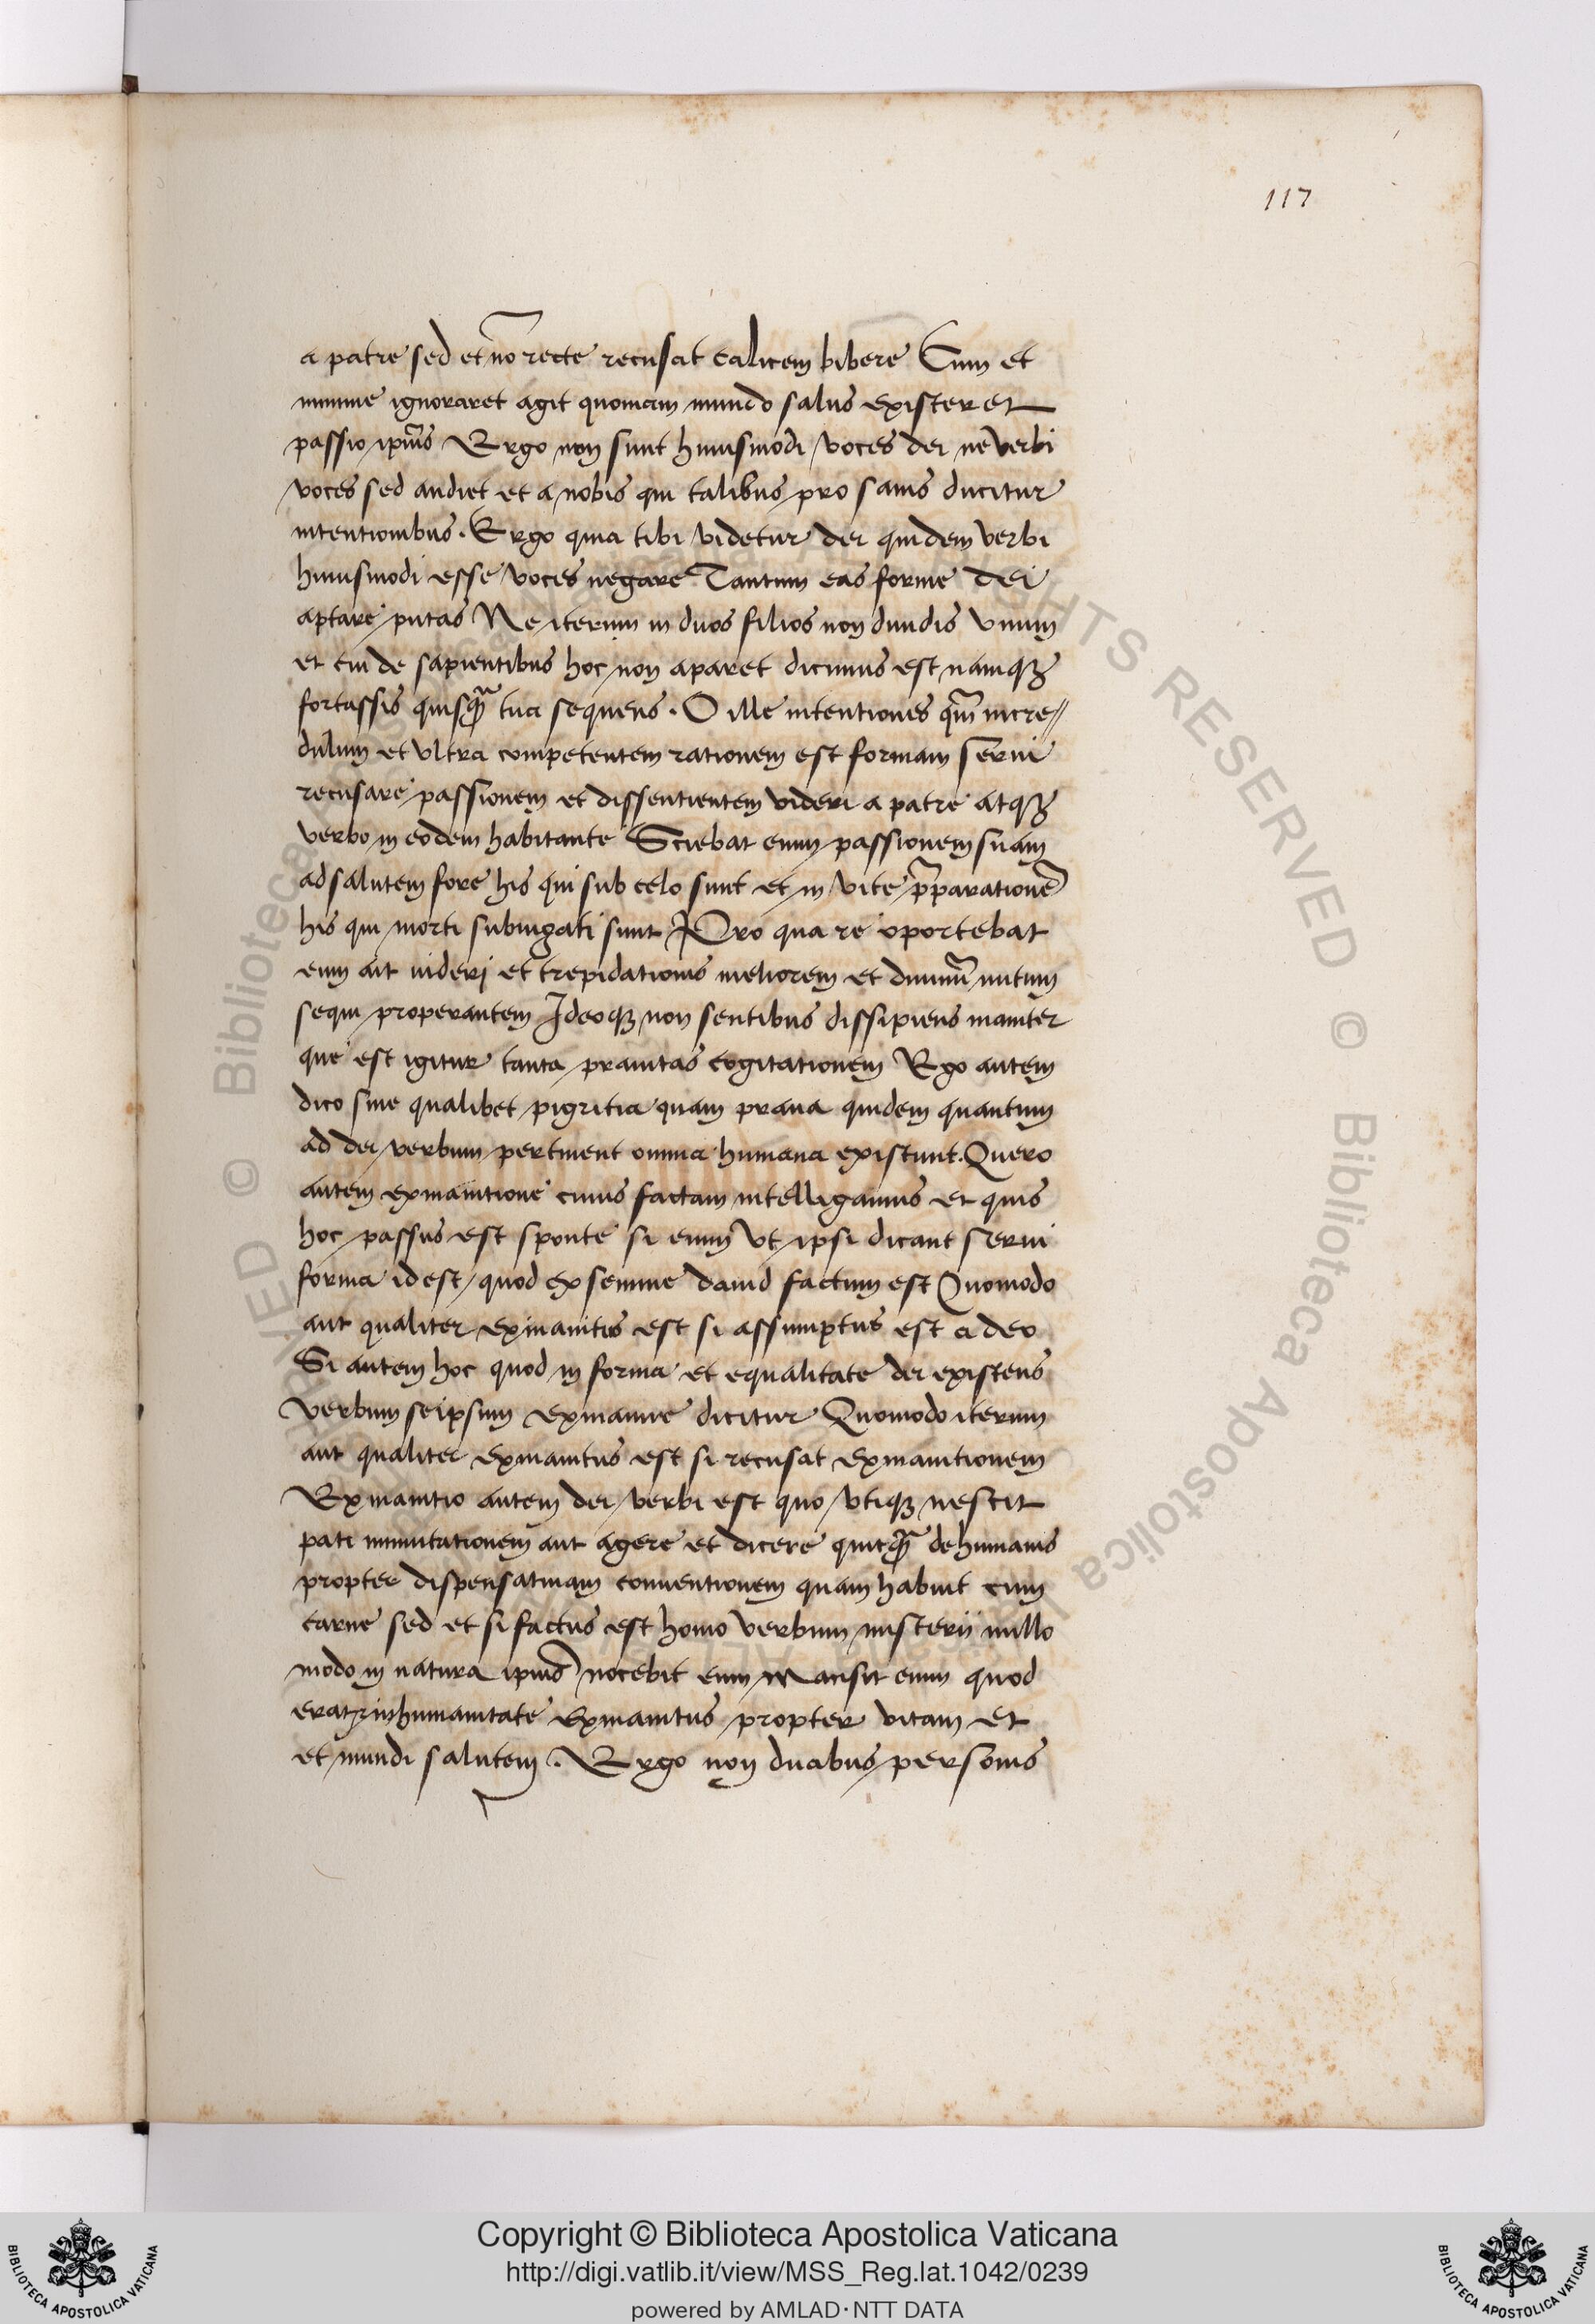 117
a patre sed et no recte recusat calicem bibere Cum et
minime ignoraret agit quoniam mundo salus existeret
passio ipius Ergo non sunt huiusmodi voces dei ne verbi
voces sed audiet et a nobis qui talibus pro sanis ducitur
intentionibus. Ergo quia tibi videtur dei quidem verbi
huiusmodi esse voces negare Tantum eas forme dei
aptare putas Ne iterum in duos filios non diuidis vnum
et cui de sapientibus hoc non aparet dicimus est namqz
fortassis quisqm tua sequens. O ille intentiones qm incre//
dulum et vltra competentem rationem est formam serui
recusare passionem et dissentientem videri a patre atqz
verbo in eodem habitante Sciebat enim passionem suam
ad salutem fore his qui sub celo sunt et in vite pparatione
his qui morti subiugati sunt Pro qua re oportebat
eum ait uideri et trepidationis meliorem et diuinu nutum
sequi properantem Ideoqz non sentibus dissipiens inaniter
que est igitur tanta prauitas cogitationem Ego autem
dico sine qualibet pigritia quam praua quidem quantum
ad dei verbum pertinent omnia humana existunt. Quero
autem exinanitione cuius factam intelligamus et quis
hoc passus est sponte si enim vt ipsi dicant serui
forma id est quod ex semine dauid factum est Quomodo
aut qualiter exinanitus est si assumptus est a deo
Si autem hoc quod in forma et equalitate dei existens
verbum seipsum exinanire dicitur Quomodo iterum
aut qualiter exinanitus est si recusat exinanitionem
Exinanitio autem dei verbi est quo vtiqz nescit
pati inmutationem aut agere et dicere quicqm de humanis
propter dispensatiuam conuentionem quam habuit cum
carne sed et si factus est homo verbum misterii nullo
modo in natura ipius nocebit eum Mansit enim quod
erat in humanitate exinanitus propter vitam et
et mundi salutem. Ergo non duabus personis
Copyright © Biblioteca Apostolica Vaticana
http://digi.vatlib.it/view/MSS_Reg.lat.1042/0239
powered by AMLAD·NTT DATA
BIBLIOTECA APOSTOLICA VATICANA
BIBLIOTECA APOSTOLICA VATICANA